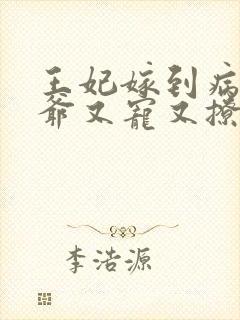 王妃嫁到病
爷又寵又撩
李浩源